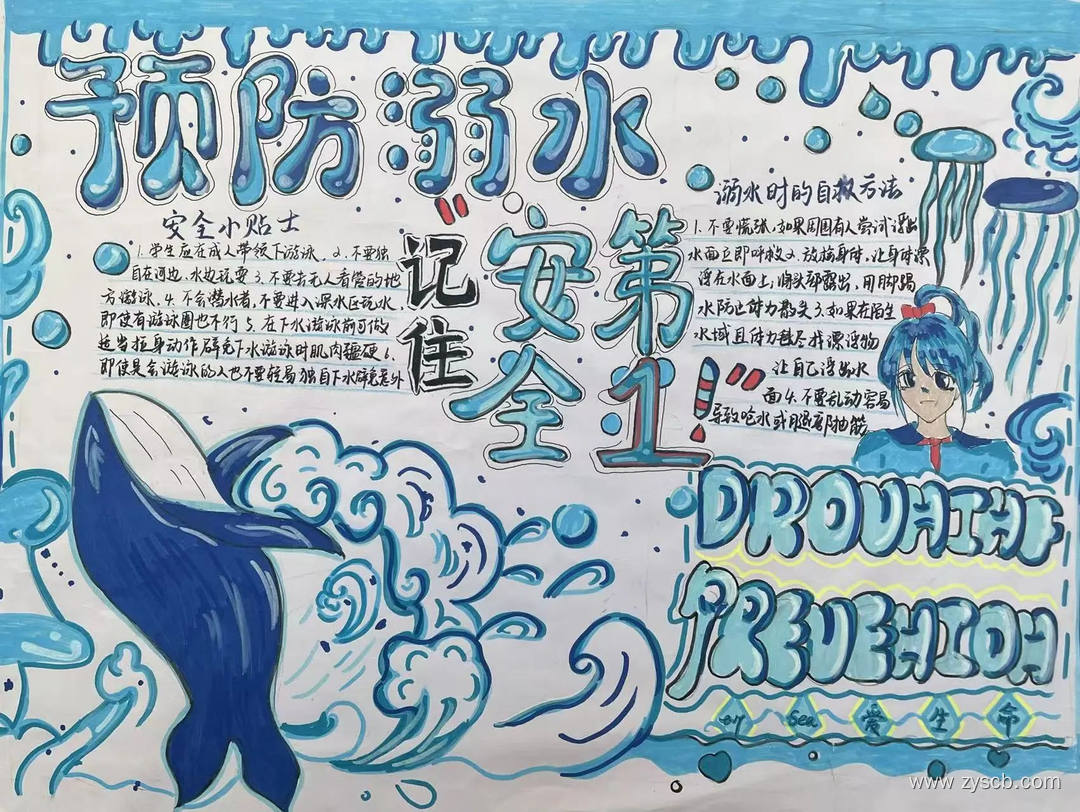 预防溺水
安全小贴士
1.学生应在成人带领下游泳.2.不要独
自在河边,水边玩耍3.不要去无人看管的地
方游泳.4.不会潜水者,不要进入深水区玩水,
即使有游泳圈也不行5.在下水游泳前可做
适当拉身动作避免下水游泳时肌肉疆硬6.
即使是会游泳的人也不要轻易独自下水避免意外
"记住
安全
第1!"
溺水时的自救方法
1.不要慌张,如果周围有人尝试浮出
水面立即呼救2.放松身体,让身体漂
浮在水面上,将头部露出,用脚踢
水防止体力散失3.如果在陌生
水域且体力耗尽找漂浮物
让自己浮出水
面4.不要乱动容易
导致呛水或腿部抽筋
DROUHIHF
PREVEHIOH
sea 爱 生 命
www.zyscb.com